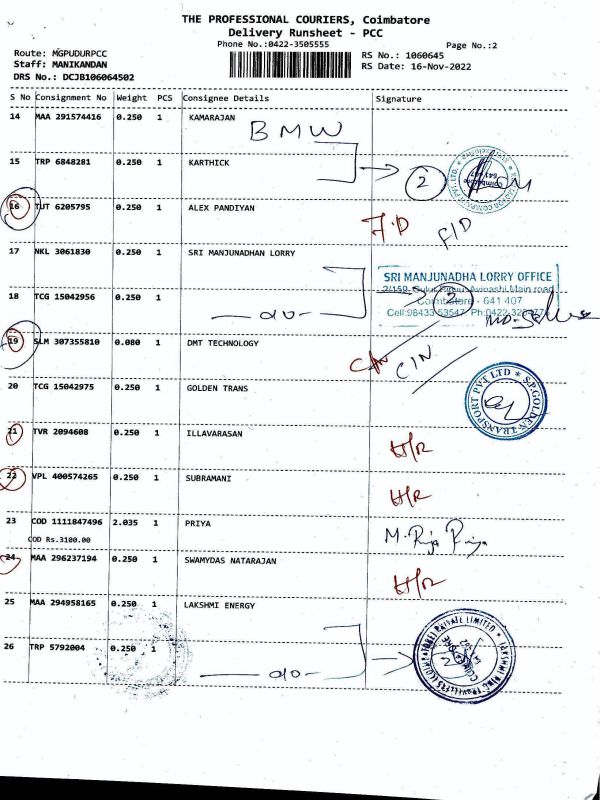 THE PROFESSIONAL COURIERS, Coimbatore
Delivery Runsheet - PCC
Phone No.:0422-3505555
Page No.:2
Route: MGPUDURPCC
RS No.: 1060645
Staff: MANIKANDAN
RS Date: 16-Nov-2022
DRS No.: DCJB106064502
S No Consignment No Weight PCS Consignee Details Signature
14 MAA 291574416 0.250 1 KAMARAJAN
BMW
15 TRP 6848281 0.250 1 KARTHICK
2
16 TUT 6205795 0.250 1 ALEX PANDIYAN
F.D
F/D
17 NKL 3061830 0.250 1 SRI MANJUNADHAN LORRY
SRI MANJUNADHA LORRY OFFICE
Avinashi Main road
Coimbatore - 641 407
Cell:98433 53547 Ph:0422
2
18 TCG 15042956 0.250 1
— do —
19 SLM 307355810 0.080 1 DMT TECHNOLOGY
C/N
C/N
20 TCG 15042975 0.250 1 GOLDEN TRANS
S.P.GOLDEN TRANSPORT PVT LTD
21 TVR 2094608 0.250 1 ILLAVARASAN
H/R
22 VPL 400574265 0.250 1 SUBRAMANI
H/R
23 COD 1111847496 2.035 1 PRIYA
COD Rs.3100.00
24 MAA 296237194 0.250 1 SWAMYDAS NATARAJAN
H/R
25 MAA 294958165 0.250 1 LAKSHMI ENERGY
26 TRP 5792004 0.250 1
— do —